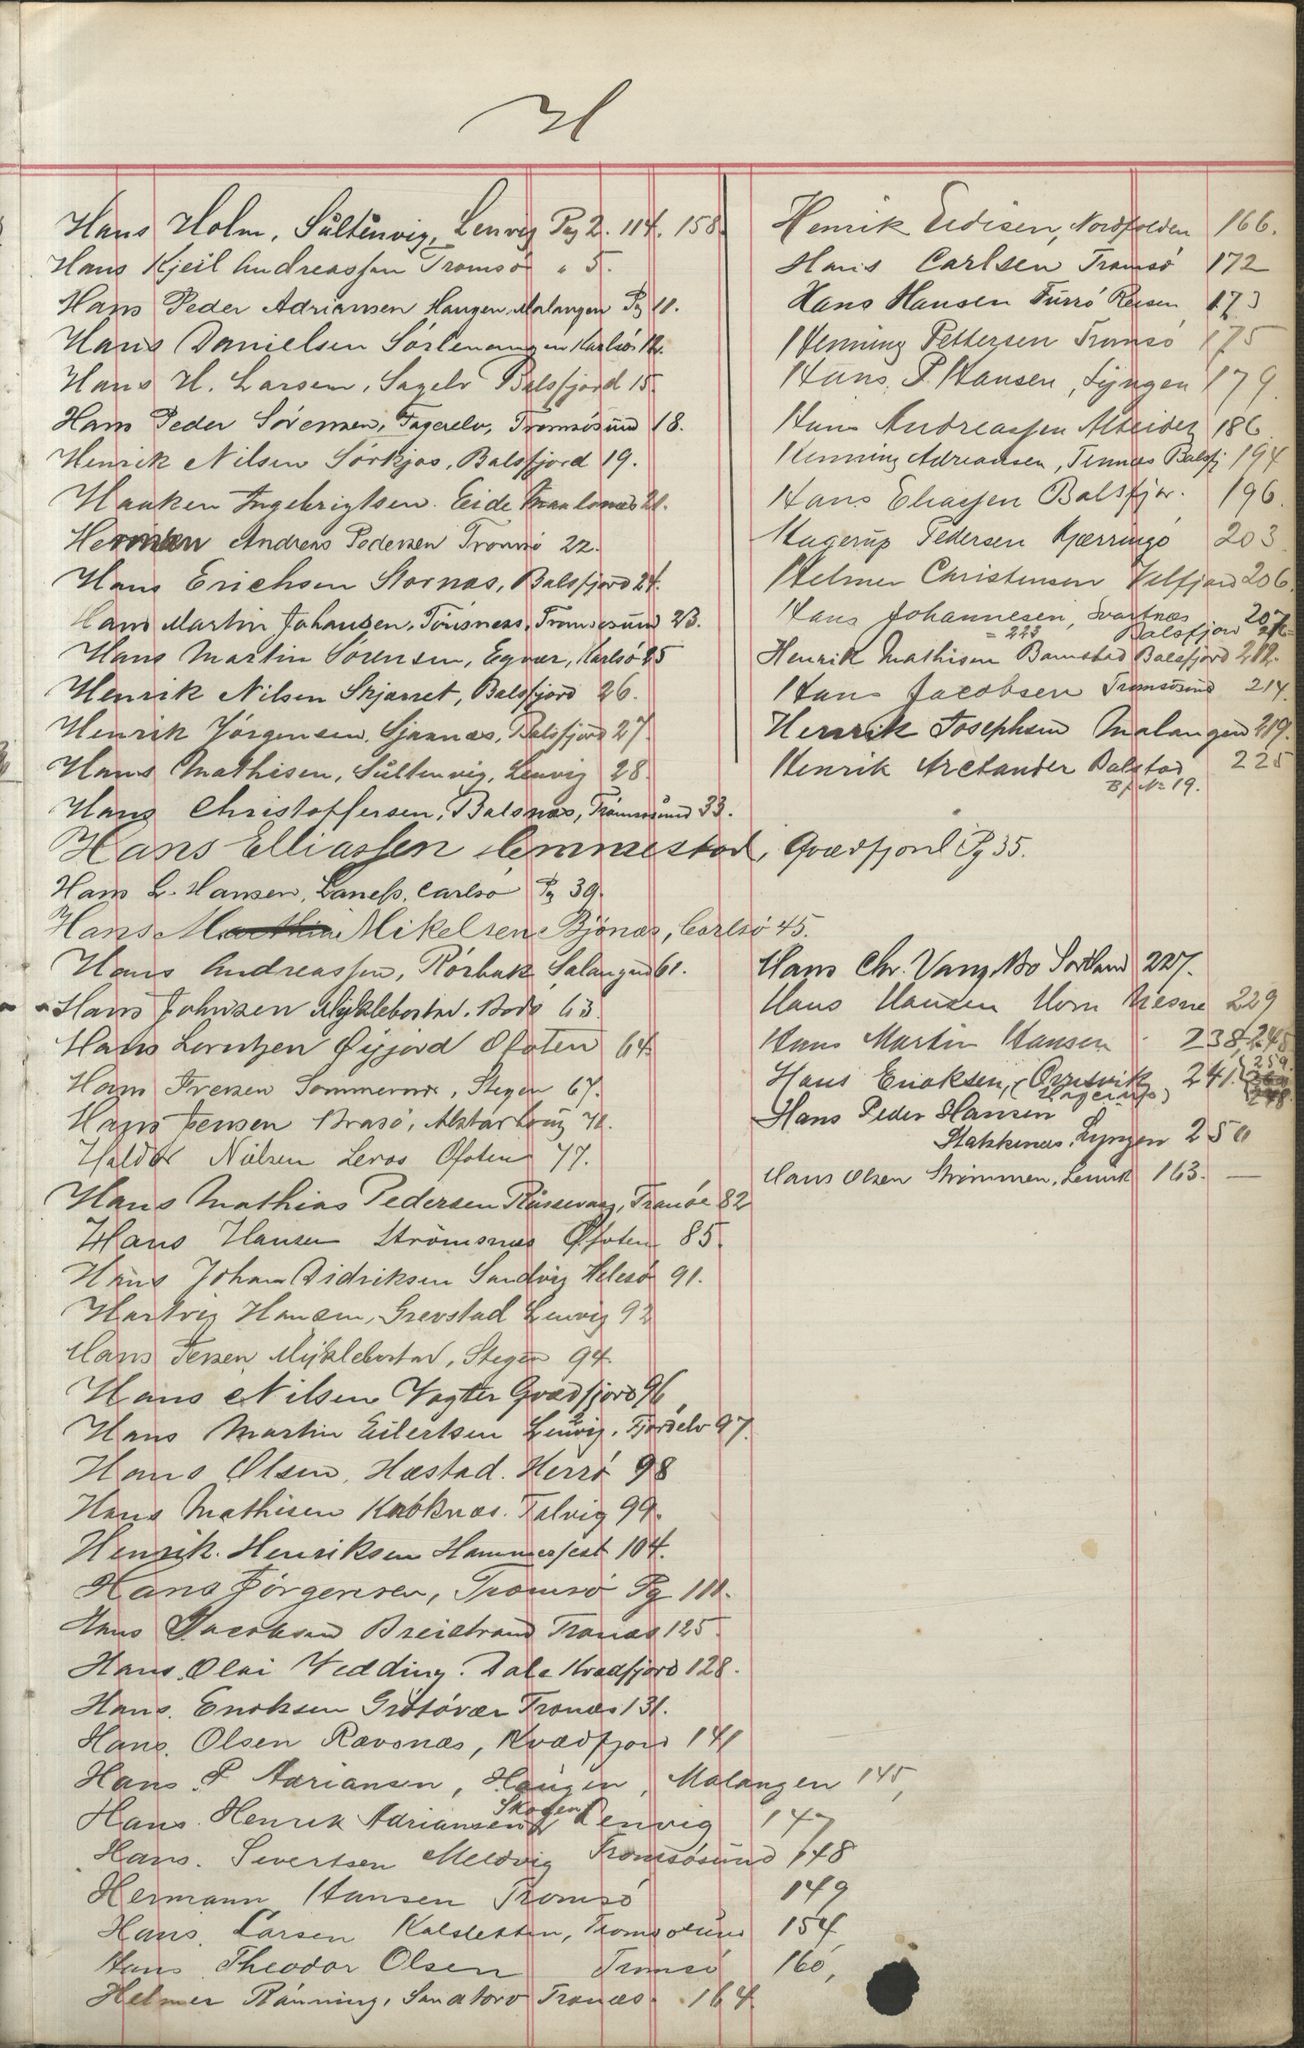 H
Hans Holm, Sultenvig, Lenvig Pag 2. 114. 158.
Hans Kjeil Andreassen Tromsö " 5.
Hans Peder Adriansen Haugen, Malangen Pg 11.
Hans Danielsen Sörlenangen Karlsö 12.
Hans H. Larsen, Sagelv Balsfjord 15.
Hans Peder Sörensen, Fagerelv, Tromsösund 18.
Henrik Nilsen Sörkjos, Balsfjord 19.
Haaken Ingebrigtsen. Eide 21.
Andreas Pedersen Tromsö 22.
Hans Erichsen Stornæs, Balsfjord 24.
Hans Martin Johansen, Tönsness, Tromsösund 23.
Hans Martin Sörensen, Egvær, Karlsö 25
Henrik Nilsen Skjærret, Balsfjord 26.
Henrik Jörgensen, Balsfjord 27.
Hans Mathisen, Sultenvig, Lenvig 28.
Hans Christoffersen, Balsnæs, Tromsösund 33.
Hans Elliassen Lemmestad, Qvædfjord Pg 35.
Hans L. Hansen, Carlsö Pg 39.
Hans Mikelsen Bjönæs, Carlsö 45.
Hans Andreassen, Rörbak, Salangen 61.
Hans Johnsen Myklebostad. Bodö 63.
Hans Lorntzen Öijord Ofoten 64.
Hans Stegen 67.
Hans Jensen Brasö, 71.
Haldor Nielsen Leros Ofoten 77.
Hans Mathias Pedersen Russevaag, Tranöe 82
Hans Hansen Strömsnæs Ofoten 85.
Hans Johan Didriksen Sandvig 91.
Hartvig Hansen, Grevstad Lenvig 92
Hans Myklebostad, Stegen 94.
Hans Nilsen Vogter Qvædfjord 96
Hans Martin Eilertsen Lenvig, Fjordelv 97.
Hans Olsen, Hæstad. Herrö 98
Hans Mathisen Talvig 99.
Henrik. Henriksen Hammerfest 104.
Hans Jörgensen, Tromsö Pg 111.
Hans Jacobsen Breistrand Tranæs 125.
Hans. Olai Vedding. Dale Kvædfjord 128.
Hans. Enoksen Grötövær Tronæs 131.
Hans. Olsen Ravnæs, Kvædfjord 141
Hans. P. Adriansen, Haugen, Malangen 145,
Hans. Henrik Adriansen Skogen Lenvig 147
Hans. Sivertsen Meldvig Tromsösund 148
Hermann Hansen Tromsö 149
Hans. Larsen Kalsletten, Tromsösund 154
Hans Theodor Olsen Tromsö 160,
Helmer Rånning, Tronæs. 164.
Henrik Eidisen, Nordfolden 166.
Hans Carlsen Tromsö 172
Hans Hansen Furrö Reisen 173
Henning Pettersen Tromsö 175
Hans. P. Hansen, Lyngen 179.
Hans Andreassen Alteidet 186
Henning Adreansen, Tennæs Balsfj 194
Hans Eliassen Balsfjor. 196.
Hagerup Pedersen Kjærringö 203
Helmer Christensen Velfjord 206
Hans Johannesen, Svartnæs 207
= 223 Balsfjord
Henrik Mathisen Bomstad Balsfjord 212.
Hans Jacobsen Tromsösund 214.
Henrik Josephsen Malangen 219.
Henrik Arctander Balstad 225
B/ No 19.
Hans Chr. Vang, Bo Sortland 227.
Hans Hansen Horn Nesne 229
Hans Martin Hansen 238, 245
Hans Enoksen, (Orresvik 241. 259.
Hans Peder Hansen
Stakkenæs, Lyngen 250
Hans Olsen Strömmen, Lenvik 163. —